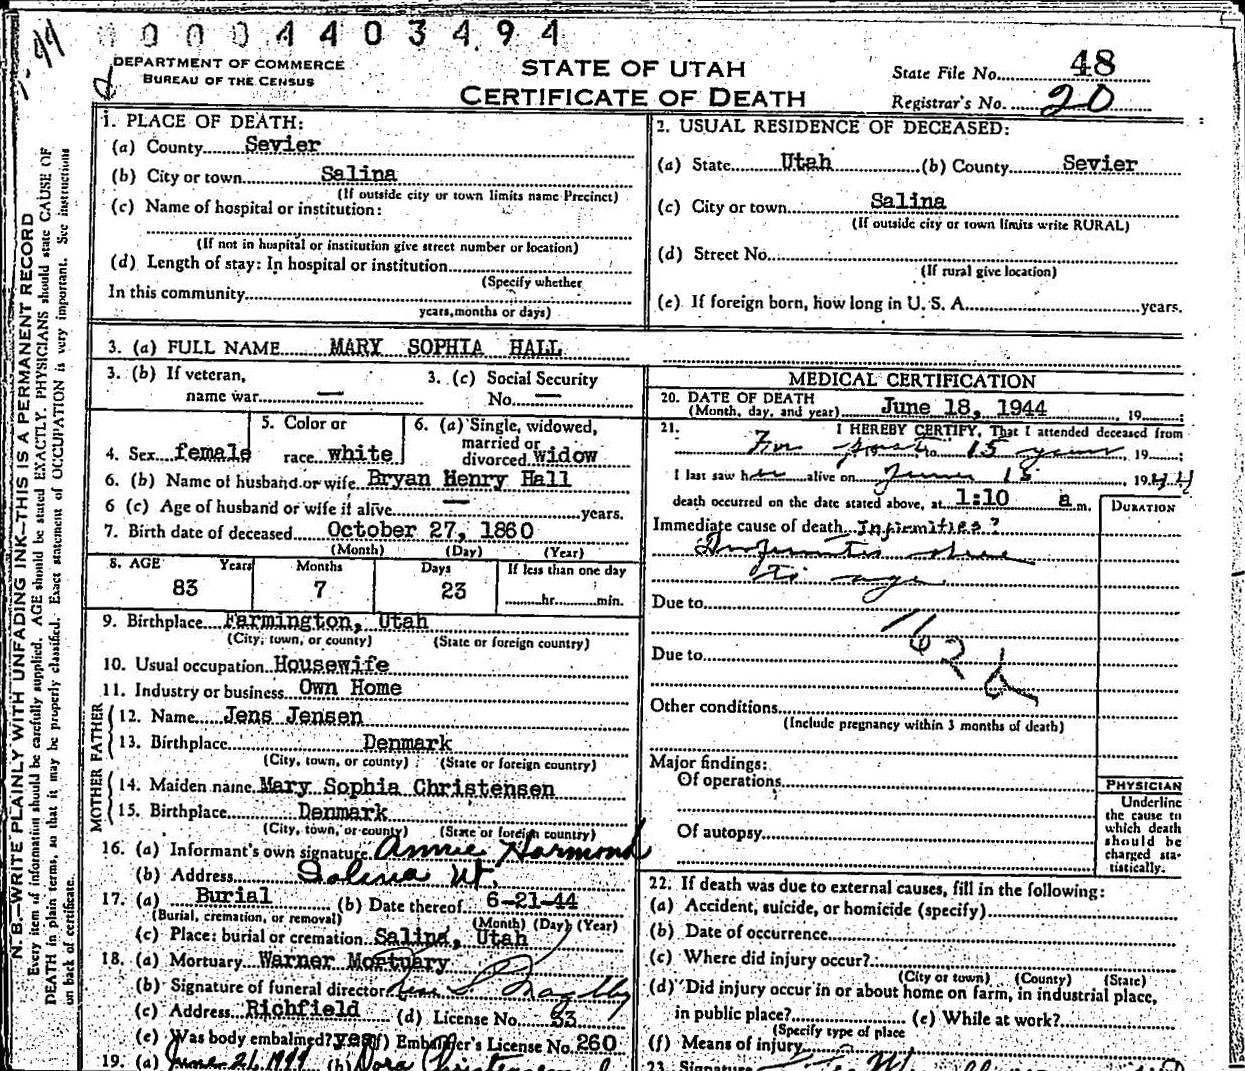 0000440349 4
44
DEPARTMENT OF COMMERCE
BUREAU OF THE CENSUS
STATE OF UTAH
CERTIFICATE OF DEATH
State File No. 48
Registrar's No. 20
N. B.—WRITE PLAINLY WITH UNFADING INK—THIS IS A PERMANENT RECORD
Every item of information should be carefully supplied. AGE should be stated EXACTLY. PHYSICIANS should state CAUSE OF
DEATH in plain terms, so that it may be properly classified. Exact statement of OCCUPATION is very important. See instructions
on back of certificate.
1. PLACE OF DEATH:
(a) County Sevier
(b) City or town Salina
(If outside city or town limits name Precinct)
(c) Name of hospital or institution:
(If not in hospital or institution give street number or location)
(d) Length of stay: In hospital or institution
(Specify whether
In this community
years, months or days)
2. USUAL RESIDENCE OF DECEASED:
(a) State Utah (b) County Sevier
(c) City or town Salina
(If outside city or town limits write RURAL)
(d) Street No.
(If rural give location)
(e) If foreign born, how long in U. S. A. years.
3. (a) FULL NAME MARY SOPHIA HALL
3. (b) If veteran, name war —
3. (c) Social Security No. —
4. Sex female
5. Color or race white
6. (a) Single, widowed, married or divorced widow
6. (b) Name of husband or wife Bryan Henry Hall
6 (c) Age of husband or wife if alive — years.
7. Birth date of deceased October 27, 1860
(Month) (Day) (Year)
8. AGE Years Months Days If less than one day
83 7 23 hr. min.
9. Birthplace Farmington, Utah
(City, town, or county) (State or foreign country)
10. Usual occupation Housewife
11. Industry or business Own Home
FATHER
12. Name Jens Jensen
13. Birthplace Denmark
(City, town, or county) (State or foreign country)
MOTHER
14. Maiden name Mary Sophia Christensen
15. Birthplace Denmark
(City, town, or county) (State or foreign country)
16. (a) Informant's own signature Annie Harmond
(b) Address Salina Ut.
17. (a) Burial (b) Date thereof 6-21-44
(Burial, cremation, or removal) (Month) (Day) (Year)
(c) Place: burial or cremation Salina, Utah
18. (a) Mortuary Warner Mortuary
(b) Signature of funeral director
(c) Address Richfield (d) License No. 53
(e) Was body embalmed? yes (f) Embalmer's License No. 260
19. (a) June 21, 1944 (b) Dora
MEDICAL CERTIFICATION
20. DATE OF DEATH
(Month, day, and year) June 18, 1944, 19 ;
21. I HEREBY CERTIFY, That I attended deceased from
For past to 15 years, 19 ;
I last saw her alive on June 15, 1944
death occurred on the date stated above, at 1:10 a m.
DURATION
Immediate cause of death Infirmities?
Infirmities due
to age
Due to
162b
Due to
Other conditions
(Include pregnancy within 3 months of death)
Major findings:
Of operations
Of autopsy
PHYSICIAN
Underline
the cause to
which death
should be
charged sta-
tistically.
22. If death was due to external causes, fill in the following:
(a) Accident, suicide, or homicide (specify)
(b) Date of occurrence
(c) Where did injury occur?
(City or town) (County) (State)
(d) Did injury occur in or about home on farm, in industrial place,
in public place? (e) While at work?
(Specify type of place
(f) Means of injury
23. Signature